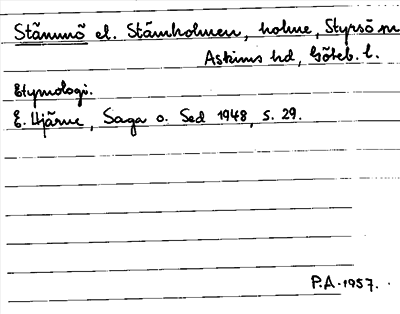 Stämmö el. Stämholmen, holme, Styrsö sn
Askims hd, Göteb. l.
Etymologi.
E. Hjärne, Saga o. Sed 1948, s. 29.
P.A. 1957.